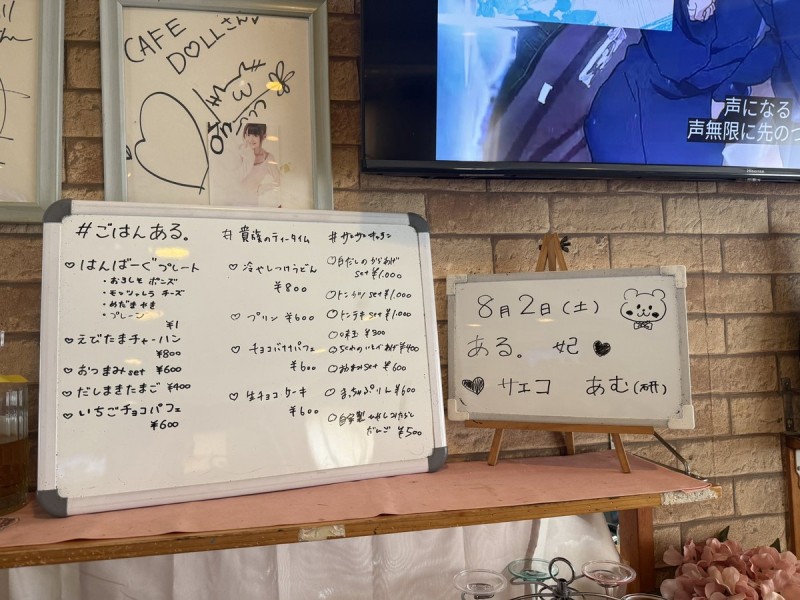 CAFE
DOLLさん♡
声になる
声無限に先のつ
Hisense
#ごはんある。
♡はんばーぐプレート
・おろしそ ポンズ
・モッツァレラ チーズ
・めだまやき
・プレーン
¥1
♡えびたまチャーハン
¥800
♡おつまみset ¥600
♡だしまきたまご ¥400
♡いちごチョコパフェ
¥600
#貴族のティータイム
♡冷やしつけうどん
¥800
♡プリン ¥600
♡チョコバナナパフェ
¥600
♡生チョコケーキ
¥600
#サンサンキッチン
○白だしのからあげ
set ¥1.000
○トンカツset ¥1.000
○トンテキset ¥1.000
○味玉 ¥300
¥400
set ¥600
○まっちゃぷりん ¥600
○自家製
だんご ¥500
8月2日(土)
ある。 妃 ♥
♥ サエコ あむ(研)